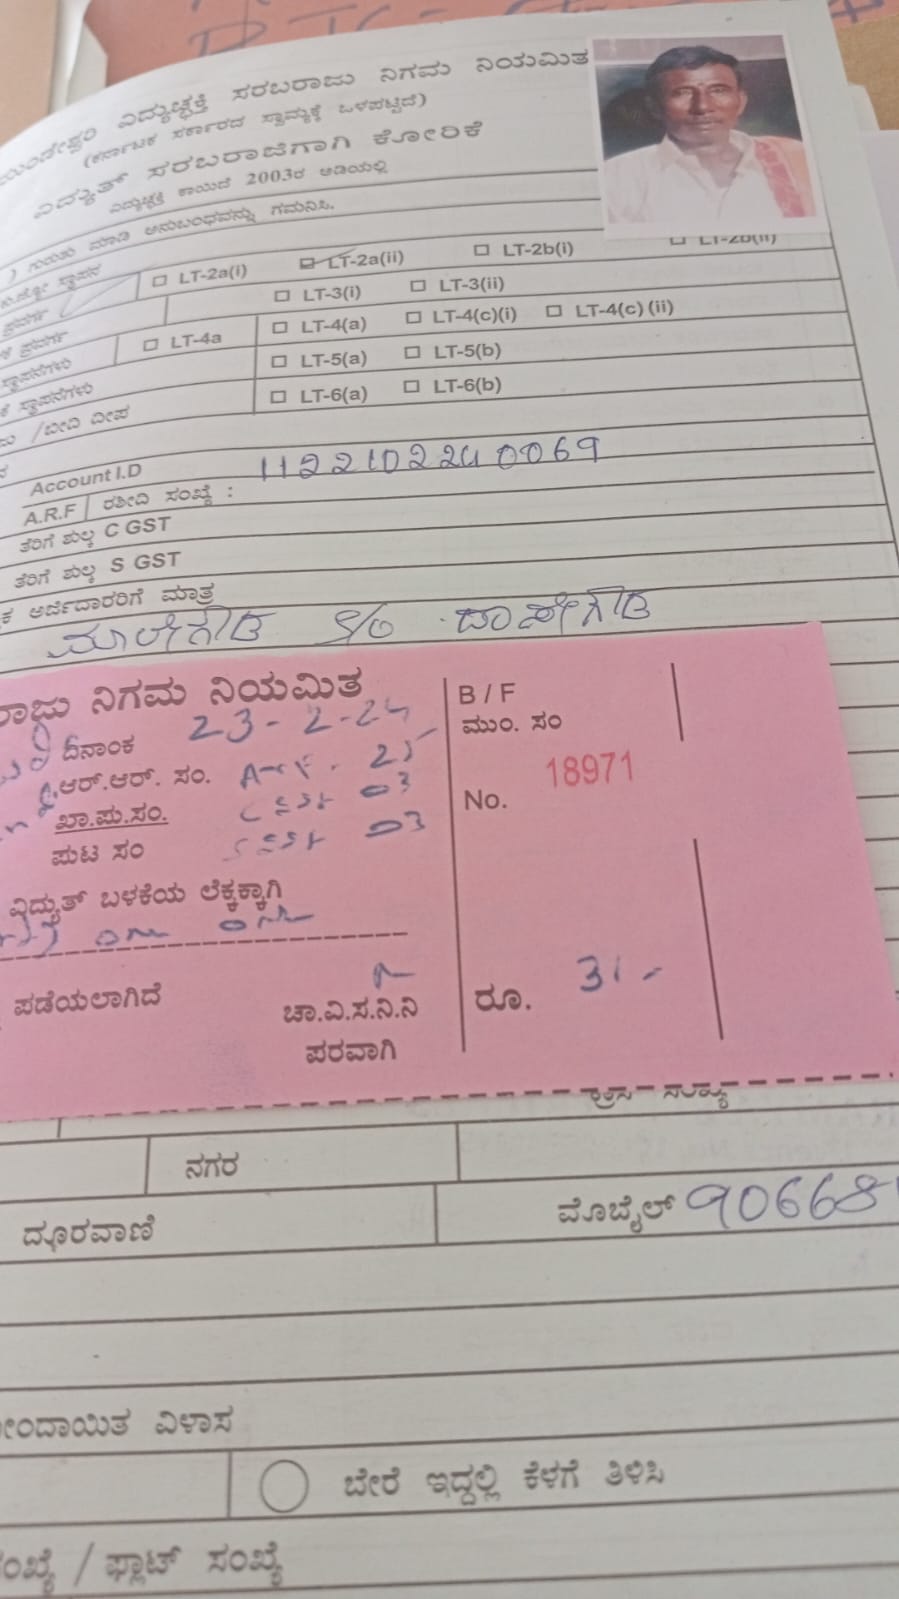 ವಿದ್ಯುಚ್ಛಕ್ತಿ ಸರಬರಾಜು ನಿಗಮ ನಿಯಮಿತ
(ಕರ್ನಾಟಕ ಸರ್ಕಾರದ ಸ್ವಾಮ್ಯಕ್ಕೆ ಒಳಪಟ್ಟಿದೆ)
ವಿದ್ಯುತ್ ಸರಬರಾಜಿಗಾಗಿ ಕೋರಿಕೆ
ವಿದ್ಯುಚ್ಛಕ್ತಿ ಕಾಯಿದೆ 2003ರ ಅಡಿಯಲ್ಲಿ
) ಗುರುತು ಮಾಡಿ ಅನುಬಂಧವನ್ನು ಗಮನಿಸಿ.
ಸ್ಥಾಪನ LT-2a(i) LT-2a(ii) LT-2b(i) LT-2b(ii)
ಪ್ರವರ್ಗ LT-3(i) LT-3(ii)
ಪ್ರವರ್ಗ LT-4a LT-4(a) LT-4(c)(i) LT-4(c)(ii)
ಸ್ಥಾಪನೆಗಳು LT-5(a) LT-5(b)
ಸ್ಥಾಪನೆಗಳು LT-6(a) LT-6(b)
/ಬೀದಿ ದೀಪ
Account I.D 1122102240069
A.R.F ರಶೀದಿ ಸಂಖ್ಯೆ :
ತೆರಿಗೆ ಶುಲ್ಕ C GST
ತೆರಿಗೆ ಶುಲ್ಕ S GST
ಅರ್ಜಿದಾರರಿಗೆ ಮಾತ್ರ
S/O
ನಿಗಮ ನಿಯಮಿತ B / F
ದಿನಾಂಕ 23-2-24 ಮುಂ. ಸಂ
ಆರ್.ಆರ್. ಸಂ. 25 18971
ಖಾ.ಪು.ಸಂ. 03 No.
ಪುಟ ಸಂ 03
ವಿದ್ಯುತ್ ಬಳಕೆಯ ಲೆಕ್ಕಕ್ಕಾಗಿ
ಪಡೆಯಲಾಗಿದೆ ರೂ. 31-
ಚಾ.ವಿ.ಸ.ನಿ.ನಿ
ಪರವಾಗಿ
ನಗರ
ದೂರವಾಣಿ ಮೊಬೈಲ್ 90668
ವಿಳಾಸ
ಬೇರೆ ಇದ್ದಲ್ಲಿ ಕೆಳಗೆ ತಿಳಿಸಿ
/ ಫ್ಲಾಟ್ ಸಂಖ್ಯೆ